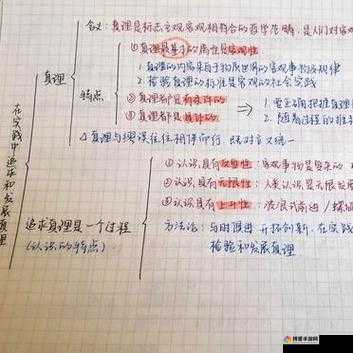 含义：真理是标志主观客观相符合的哲学范畴，是人们对客
①真理最基本的属性是客观性
1. 真理的内容来自于物质世界的客观事物及规律
2. 检验真理的标准是客观的社会实践
真理
特点
②真理都是有条件的
③真理都是具体的
1. 要正确把握真理
2. 随着过程的推
④真理与谬误往往相伴而行
在实践中追求和发展真理
①认识具有反复性：客观事物是复杂的
②认识具有无限性：人类认识是无限发展
③认识具有上升性：波浪式前进
追求真理是一个过程
(认识的特点)
方法论：与时俱进 开拓创新，在实践
检验和发展真理